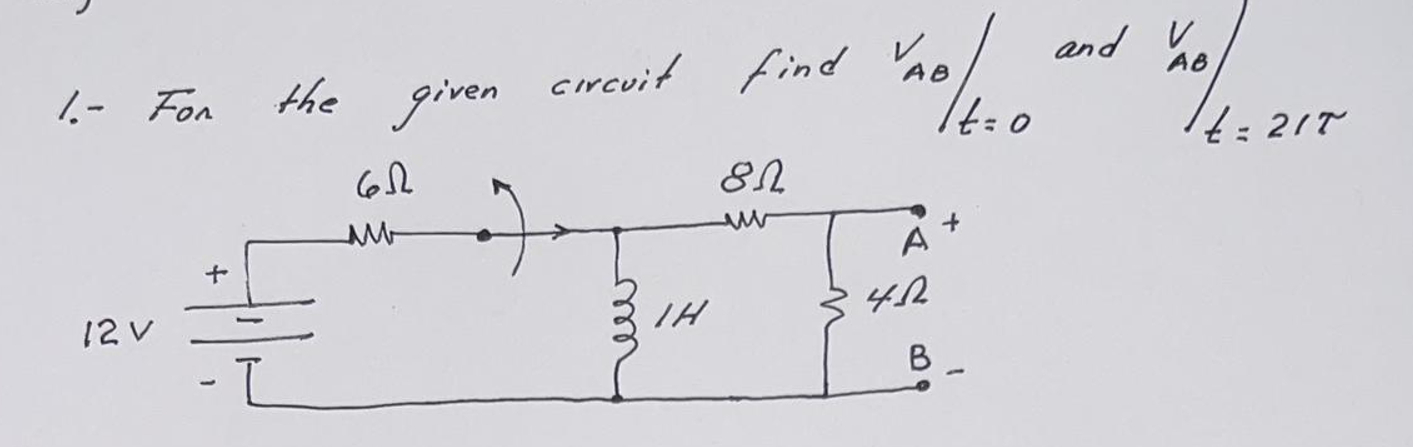 1.- For the given circuit find VAB/t=0 and VAB/t=21τ
6Ω 8Ω
+ A +
12V 1H 4Ω
- B -